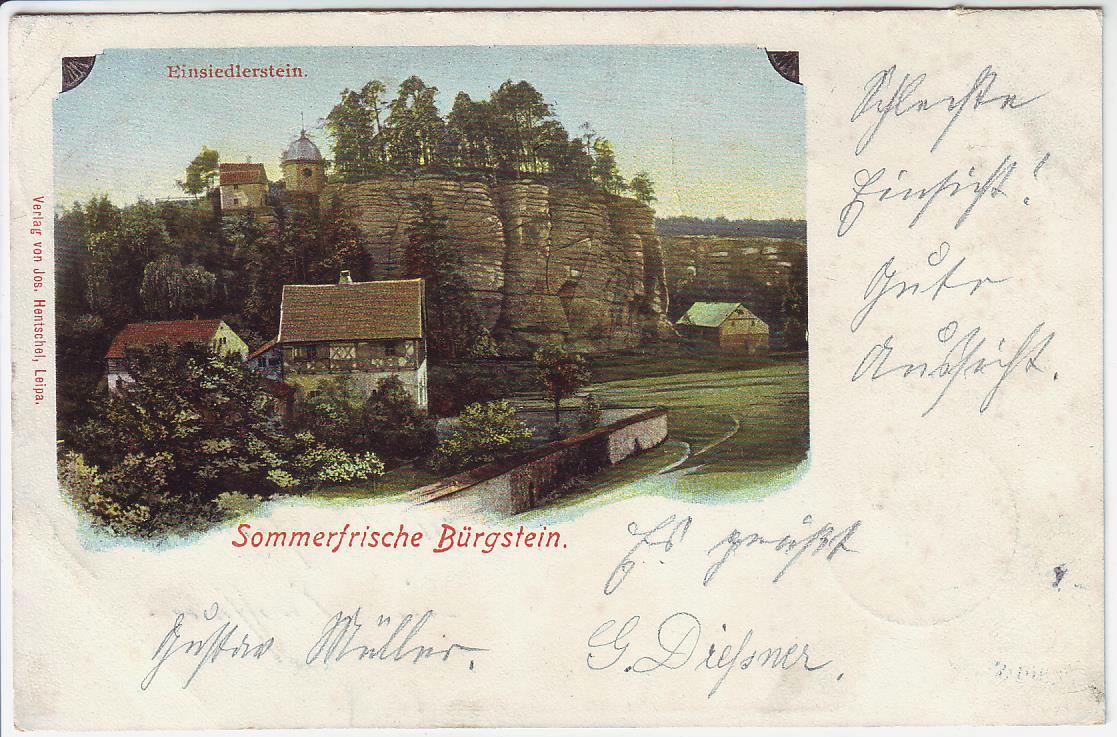 Einsiedlerstein.
Verlag von Jos. Hentschel, Leipa.
Sommerfrische Bürgstein.
Schlechte
Einsicht!
Gute
Aussicht.
Es grüßt
Gustav Müller.
G. Dießner.